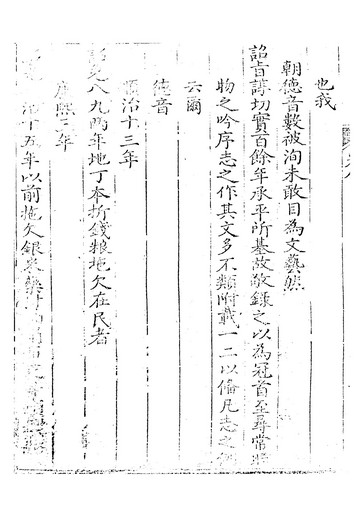 也我
朝德音數被洵未敢目為文藝然
詔旨諄切實百餘年承平所基故敬錄之以為冠首至尋常
物之吟序志之作其文多不類附載一二以備凡志之
云爾
德音
順治十三年
八九兩年地丁本折錢糧拖欠在民者
康熙三年
治十五年以前拖欠銀